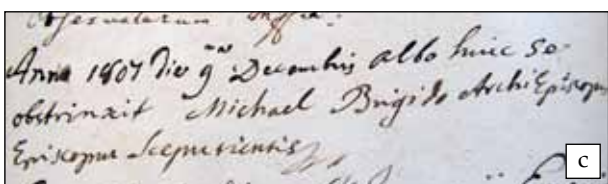 Observatorum
Anno 1807 Die 9na Decembris albo huic se
obstrinxit Michael Brigido ArchiEpiscopus
Episcopus Scepusiensis
c